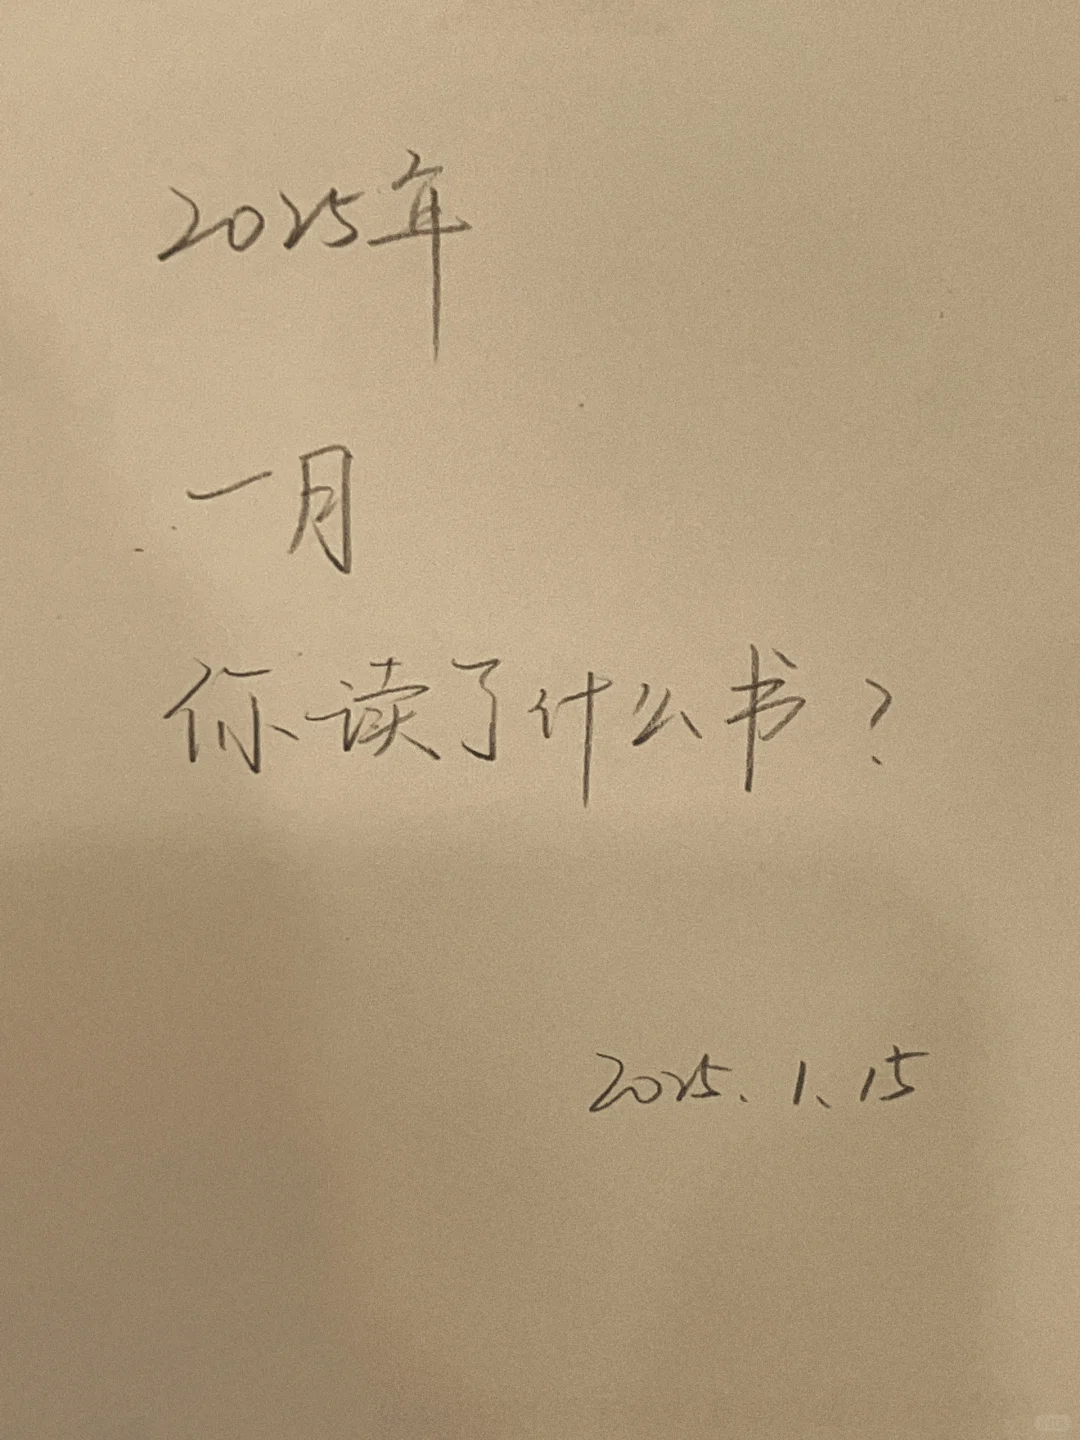 2025年
一月
你读了什么书？
2025.1.15